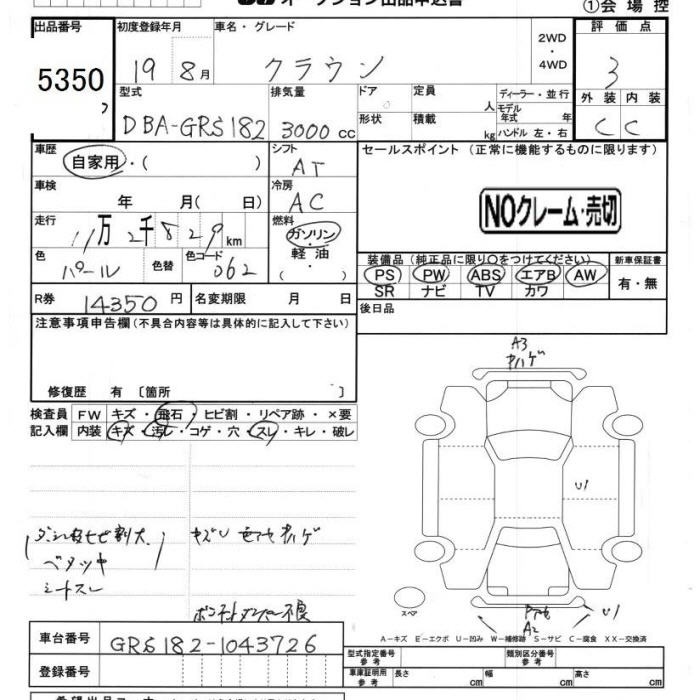 オークション出品申込書
①会場控
出品番号
初度登録年月
車名・グレード
2WD
・
4WD
評価点
5350
19 8月
クラウン
3
型式
排気量
ドア
定員
人
ディーラー・並行
モデル年式 年
外装 内装
DBA-GRS182
3000cc
形状
積載
kg
ハンドル 左・右
C C
車歴
自家用・( )
シフト
AT
セールスポイント(正常に機能するものに限ります)
車検
年 月( 日)
冷房
AC
NOクレーム・売切
走行
11万2千829km
燃料
ガソリン
軽油
・( )
色
パール
色替
色コード
062
装備品(純正品に限り○をつけてください)
新車保証書
PS PW ABS エアB AW
SR ナビ TV カワ
有・無
R券 14350円
名変期限 月 日
後日品
注意事項申告欄(不具合内容等は具体的に記入して下さい)
修復歴 有〔箇所 〕
A3
キハゲ
検査員
記入欄
FW キズ・飛石・ヒビ割・リペア跡・×要
内装 キズ・汚レ・コゲ・穴・スレ・キレ・破レ
U1
ベタツ中
シートスレ
スペア
A2
U1
A-キズ E-エクボ U-凹み W-補修跡 S-サビ C-腐食 XX-交換済
車台番号 GRS182-1043726
登録番号
型式指定番号
参考
類別区分番号
参考
車庫証明用
参考
長さ cm
幅 cm
高さ cm